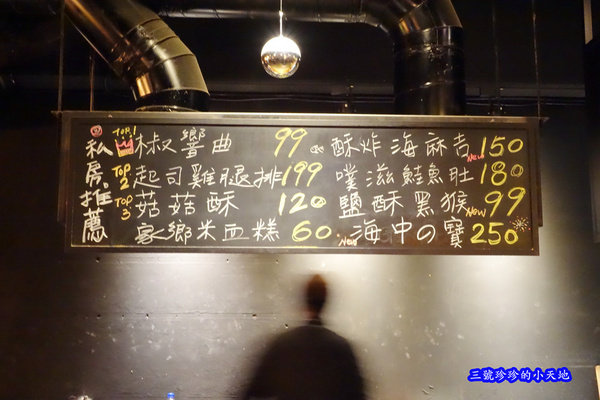 私房推薦
TOP1 椒響曲 99
TOP2 起司雞腿排 199
TOP3 菇菇酥 120
家鄉米血糕 60
酥炸海麻吉 New 150
噗滋鮭魚肚 180
鹽酥黑猴 New 99
New 海中の寶 250
三號珍珍的小天地